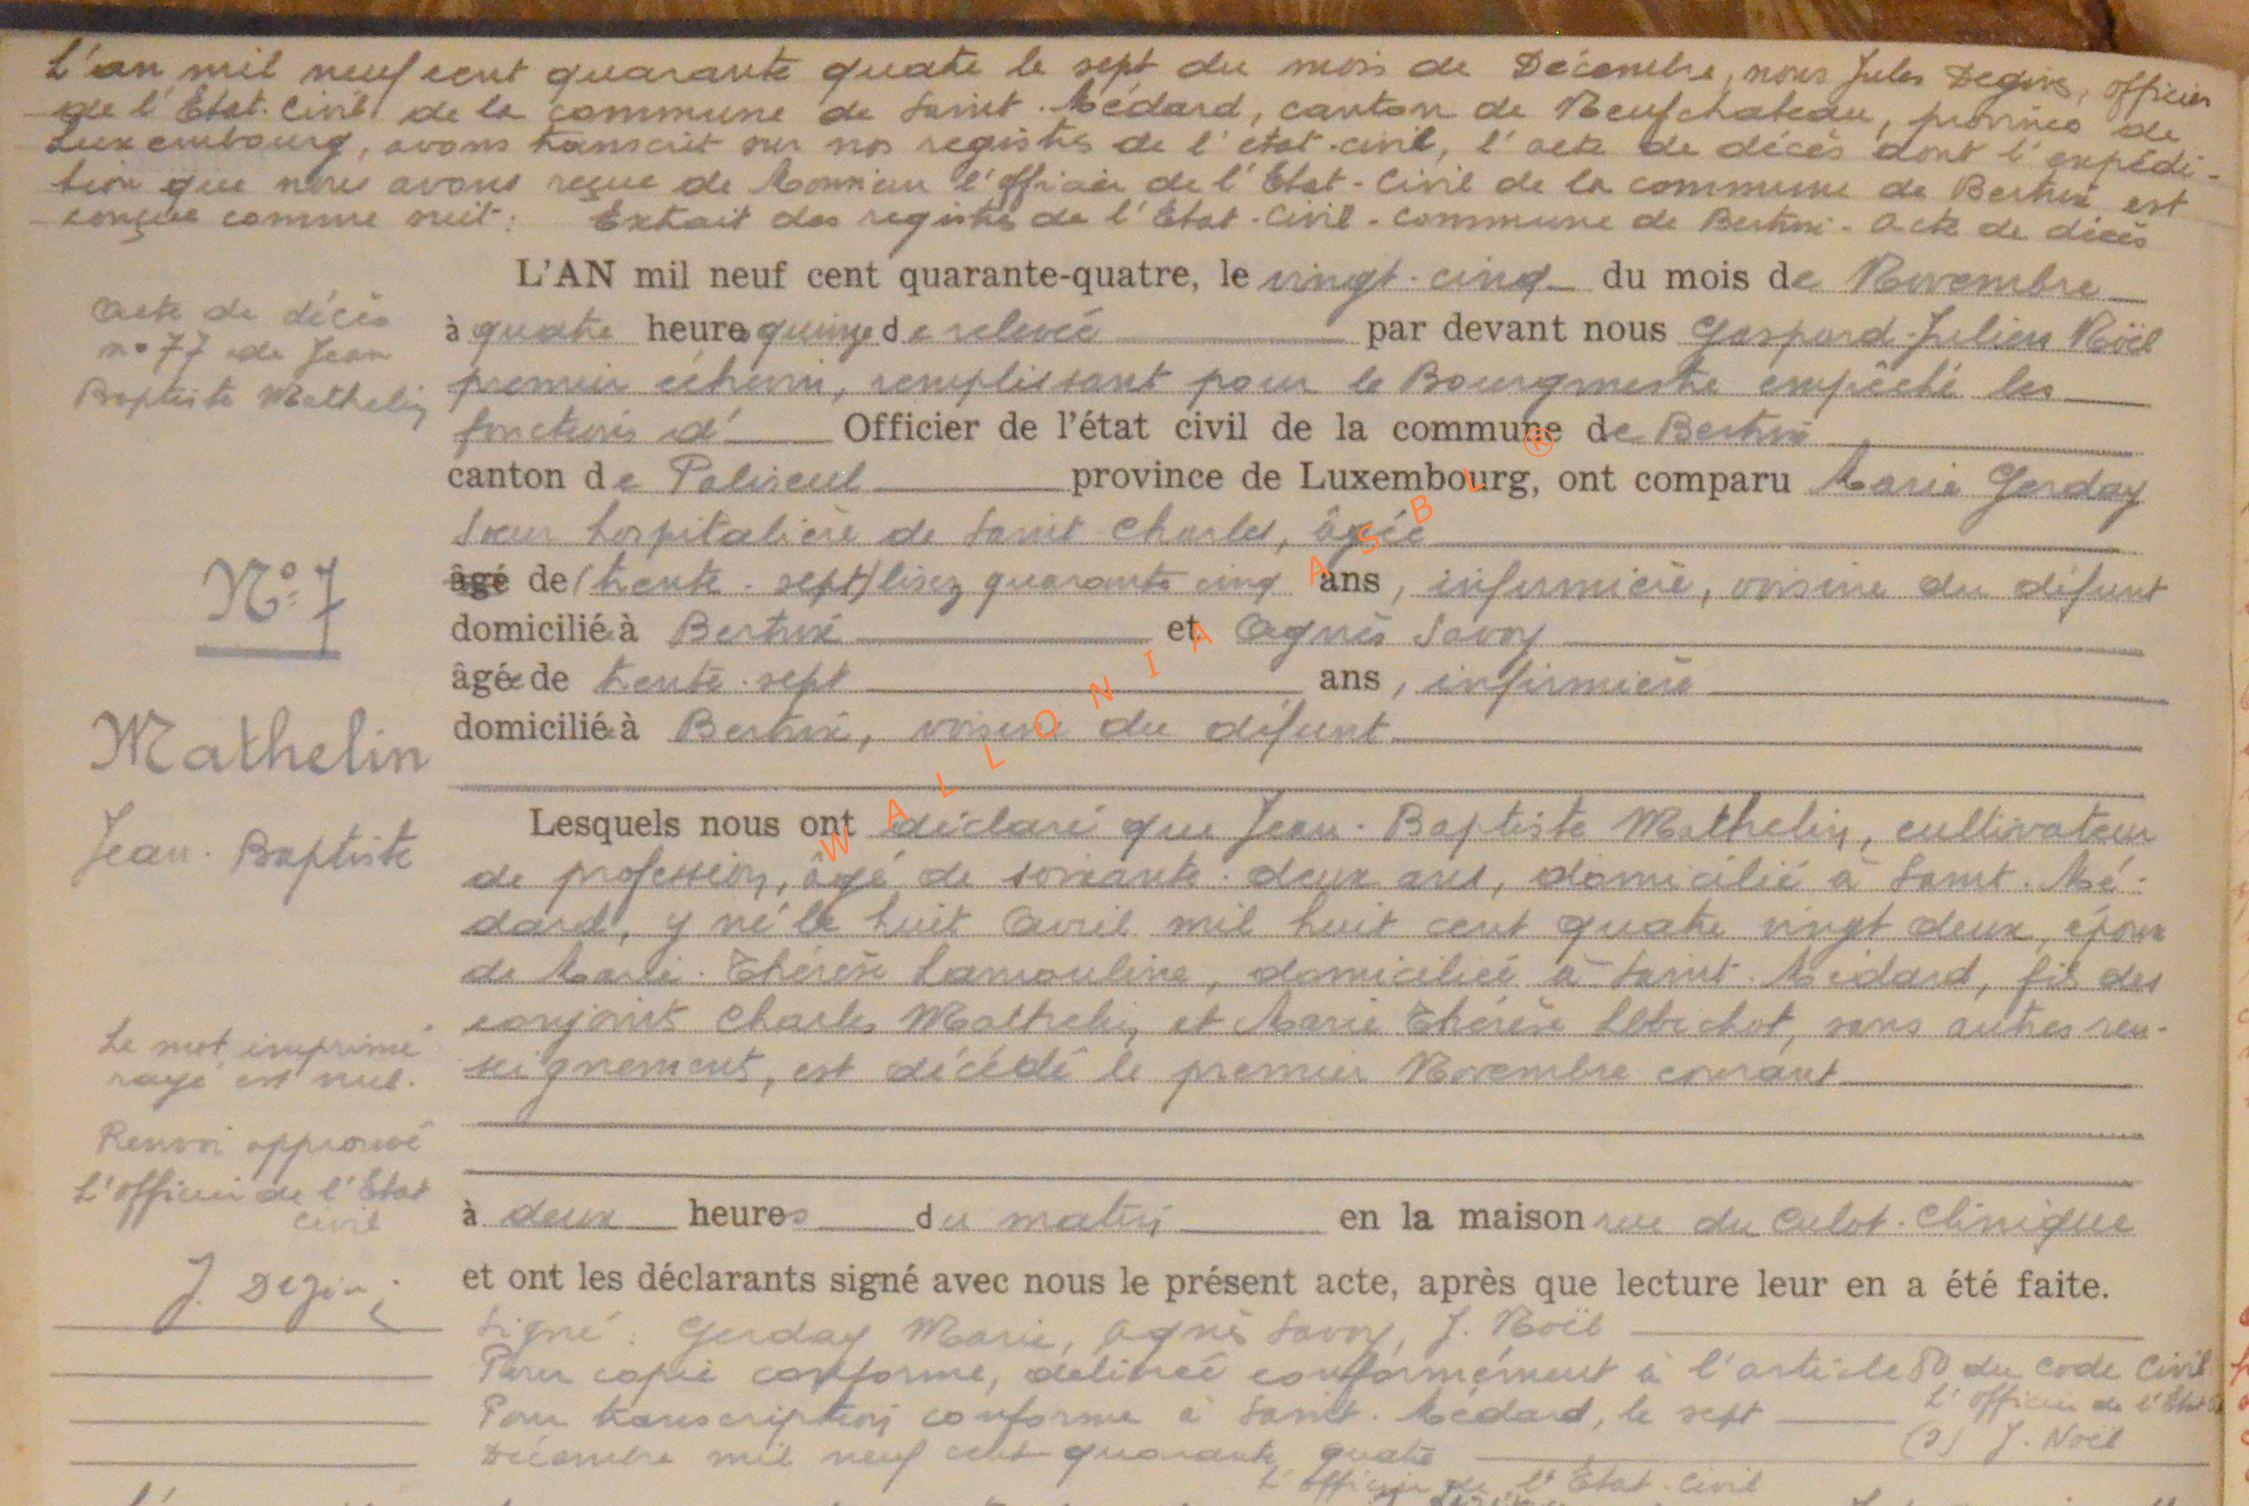 L'an mil neuf cent quarante quatre le sept du mois de Décembre, nous Jules Degive, officier
de l'Etat-Civil de la commune de Saint-Médard, canton de Neufchateau, province de
Luxembourg, avons transcrit sur nos registres de l'état-civil, l'acte de décès dont l'expédi-
tion que nous avons reçue de Monsieur l'officier de l'Etat-Civil de la commune de Bertrix est
conçue comme suit: Extrait des registres de l'Etat-Civil - Commune de Bertrix - Acte de décès
L'AN mil neuf cent quarante-quatre, le vingt-cinq du mois de Novembre
à quatre heures quinze de relevée par devant nous Gaspard-Julien Noël
premier échevin, remplissant pour le Bourgmestre empêché les
fonctions d' Officier de l'état civil de la commune de Bertrix
canton de Paliseul province de Luxembourg, ont comparu Marie Gerday
Sœur hospitalière de Saint Charles, âgée
âgé de (trente-sept) lisez quarante cinq ans, infirmière, voisine du défunt
domiciliée à Bertrix et Agnès Savoy
âgée de trente-sept ans, infirmière
domiciliée à Bertrix, voisine du défunt
Lesquels nous ont déclaré que Jean-Baptiste Mathelin, cultivateur
de profession, âgé de soixante-deux ans, domicilié à Saint-Mé-
dard, y né le huit Avril mil huit cent quatre vingt deux, époux
de Marie-Thérèse Lamouline, domiciliée à Saint-Médard, fils des
conjoints Charles Mathelin et Marie Thérèse, sans autres ren-
seignements, est décédé le premier Novembre courant
à deux heures du matin en la maison rue du Culot-Clinique
et ont les déclarants signé avec nous le présent acte, après que lecture leur en a été faite.
Signé: Gerday Marie, Agnès Savoy, J. Noël
Pour copie conforme, délivrée conformément à l'article 80 du code Civil
L'officier de l'Etat
(s) J. Noël
Pour transcription conforme à Saint-Médard, le sept
Décembre mil neuf cent quarante quatre
L'officier de l'Etat-Civil
Acte de décès
n° 77 de Jean
Baptiste Mathelin
N° 7
Mathelin
Jean-Baptiste
Le mot imprimé
rayé est nul.
Renvoi approuvé
L'officier de l'Etat
Civil
J. Degive
WALLONIA ASBL ®